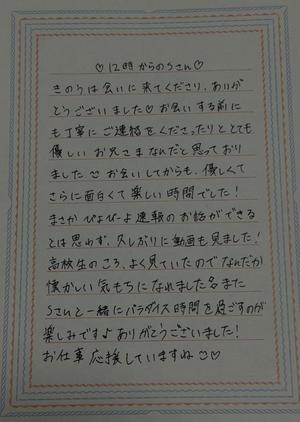 ♡12時からのSさん♡
きのうは会いに来てくださり、ありが
とうございました♡お会いする前に
も丁寧にご連絡をくださったりととても
優しいお兄さまなんだと思っており
ました☺お会いしてからも、優しくて
さらに面白くて楽しい時間でした!
まさかぴよぴーよ速報のお話ができる
とは思わず、久しぶりに動画も見ました!
高校生のころ、よく見ていたのでなんだか
懐かしい気もちになれました。また
Sさんと一緒にパラダイス時間を過ごすのが
楽しみです♪ありがとうございました!
お仕事応援していますね☺♡